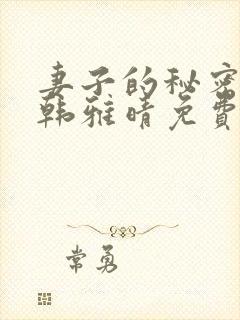 妻子的秘密
韩雅晴免費
常勇